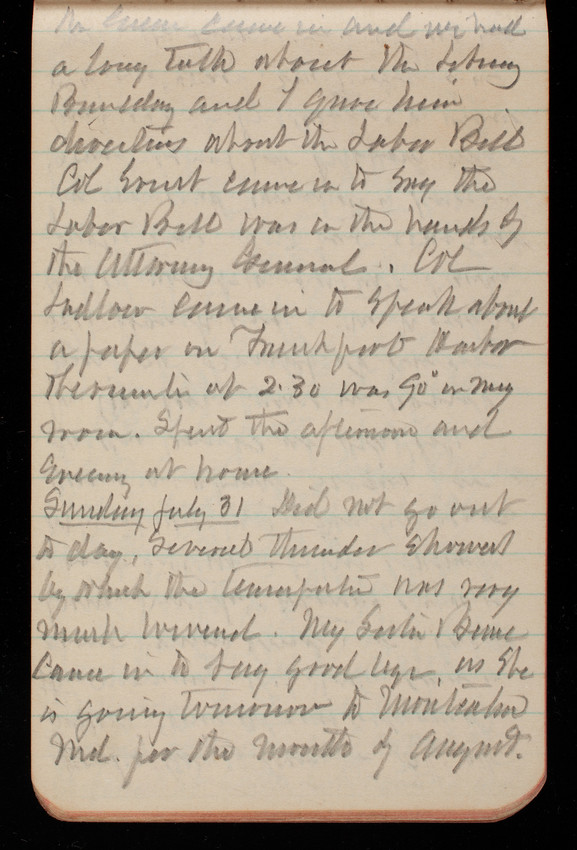 came in and we had
a long talk about the Library
Building and I gave him
directions about the Labor Bill
Col came in to say the
Labor Bill was in the hands of
the Attorney General. Col
Ludlow came in to speak about
a paper on Frankfort Harbor
at 2.30 was 90° in my
room. Spent the afternoon and
Evening at home.
Sunday July 31 Did not go out
to day, Several thunder Showers
by which the temperature was very
much lowered. My Sister
Came in to say good bye, as She
is going tomorrow to
Md. for the month of August.